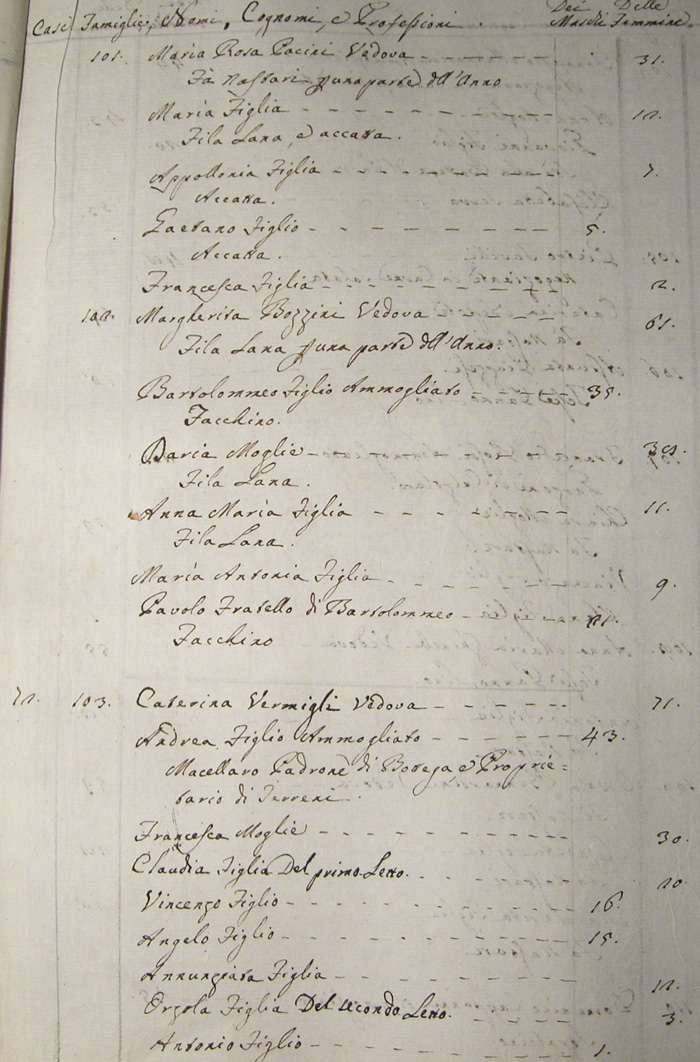 Case Famiglie, Nomi, Cognomi, e Professioni. Dei Maschi Delle Femmine.
101. Maria Rosa Pacini Vedova 31.
Fà Nastari p una parte dell'Anno
Maria Figlia - - - - - - - - 12.
Fila Lana, e accatta.
Appollonia Figlia - - - - - - 7.
Accatta.
Gaetano Figlio - - - - - - - 5.
Accatta.
Francesca Figlia - - - - - - 2.
102. Margherita Bozzini Vedova - - - - 61.
Fila Lana p una parte dell'Anno.
Bartolommeo Figlio Ammogliato - - - - 35.
Facchino.
Daria Moglie - - - - - - - 39.
Fila Lana.
Anna Maria Figlia - - - - - - 11.
Fila Lana.
Maria Antonia Figlia - - - - - 9.
Pavolo Fratello di Bartolommeo - - -
Facchino
72. 103. Caterina Vermigli Vedova - - - - - - 71.
Andrea Figlio Ammogliato - - - - - - 43.
Macellaro Padrone di Bottega, e Proprie=
tario di Terreni.
Francesca Moglie - - - - - - - - 30.
Claudia Figlia Del primo Letto. - - - - 20.
Vincenzo Figlio - - - - - - - - - 16.
Angelo Figlio - - - - - - - - - 15.
Annunziata Figlia - - - - - - - 12.
Orsola Figlia Del secondo Letto. - - - 3.
Antonio Figlio - - - - - - - - 1.